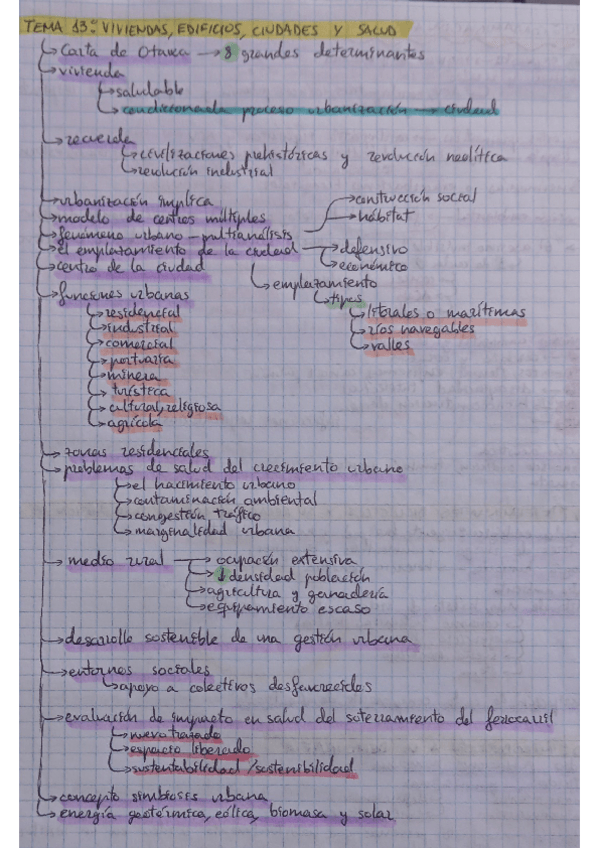 TEMA 13: VIVIENDAS, EDIFICIOS, CIUDADES Y SALUD
Carta de Otawa → 8 grandes determinantes
vivienda
saludable
condicionada proceso urbanización → ciudad
recuerda
civilizaciones prehistóricas y revolución neolítica
revolución industrial
urbanización implica
modelo de centros múltiples
fenómeno urbano - multianálisis
construcción social
hábitat
el emplazamiento de la ciudad
defensivo
económico
centro de la ciudad
emplazamiento
tipos
litorales o marítimas
ríos navegables
valles
funciones urbanas
residencial
industrial
comercial
portuaria
minera
turística
cultural, religiosa
agrícola
zonas residenciales
problemas de salud del crecimiento urbano
el hacinamiento urbano
contaminación ambiental
congestión tráfico
marginalidad urbana
medio rural → ocupación extensiva
↓ densidad población
agricultura y ganadería
equipamiento escaso
desarrollo sostenible de una gestión urbana
entornos sociales
apoyo a colectivos desfavorecidos
evaluación de impacto en salud del soterramiento del ferrocarril
nuevo trazado
espacio liberado
sustentabilidad / sostenibilidad
concepto simbiosis urbana
energía geotérmica, eólica, biomasa y solar